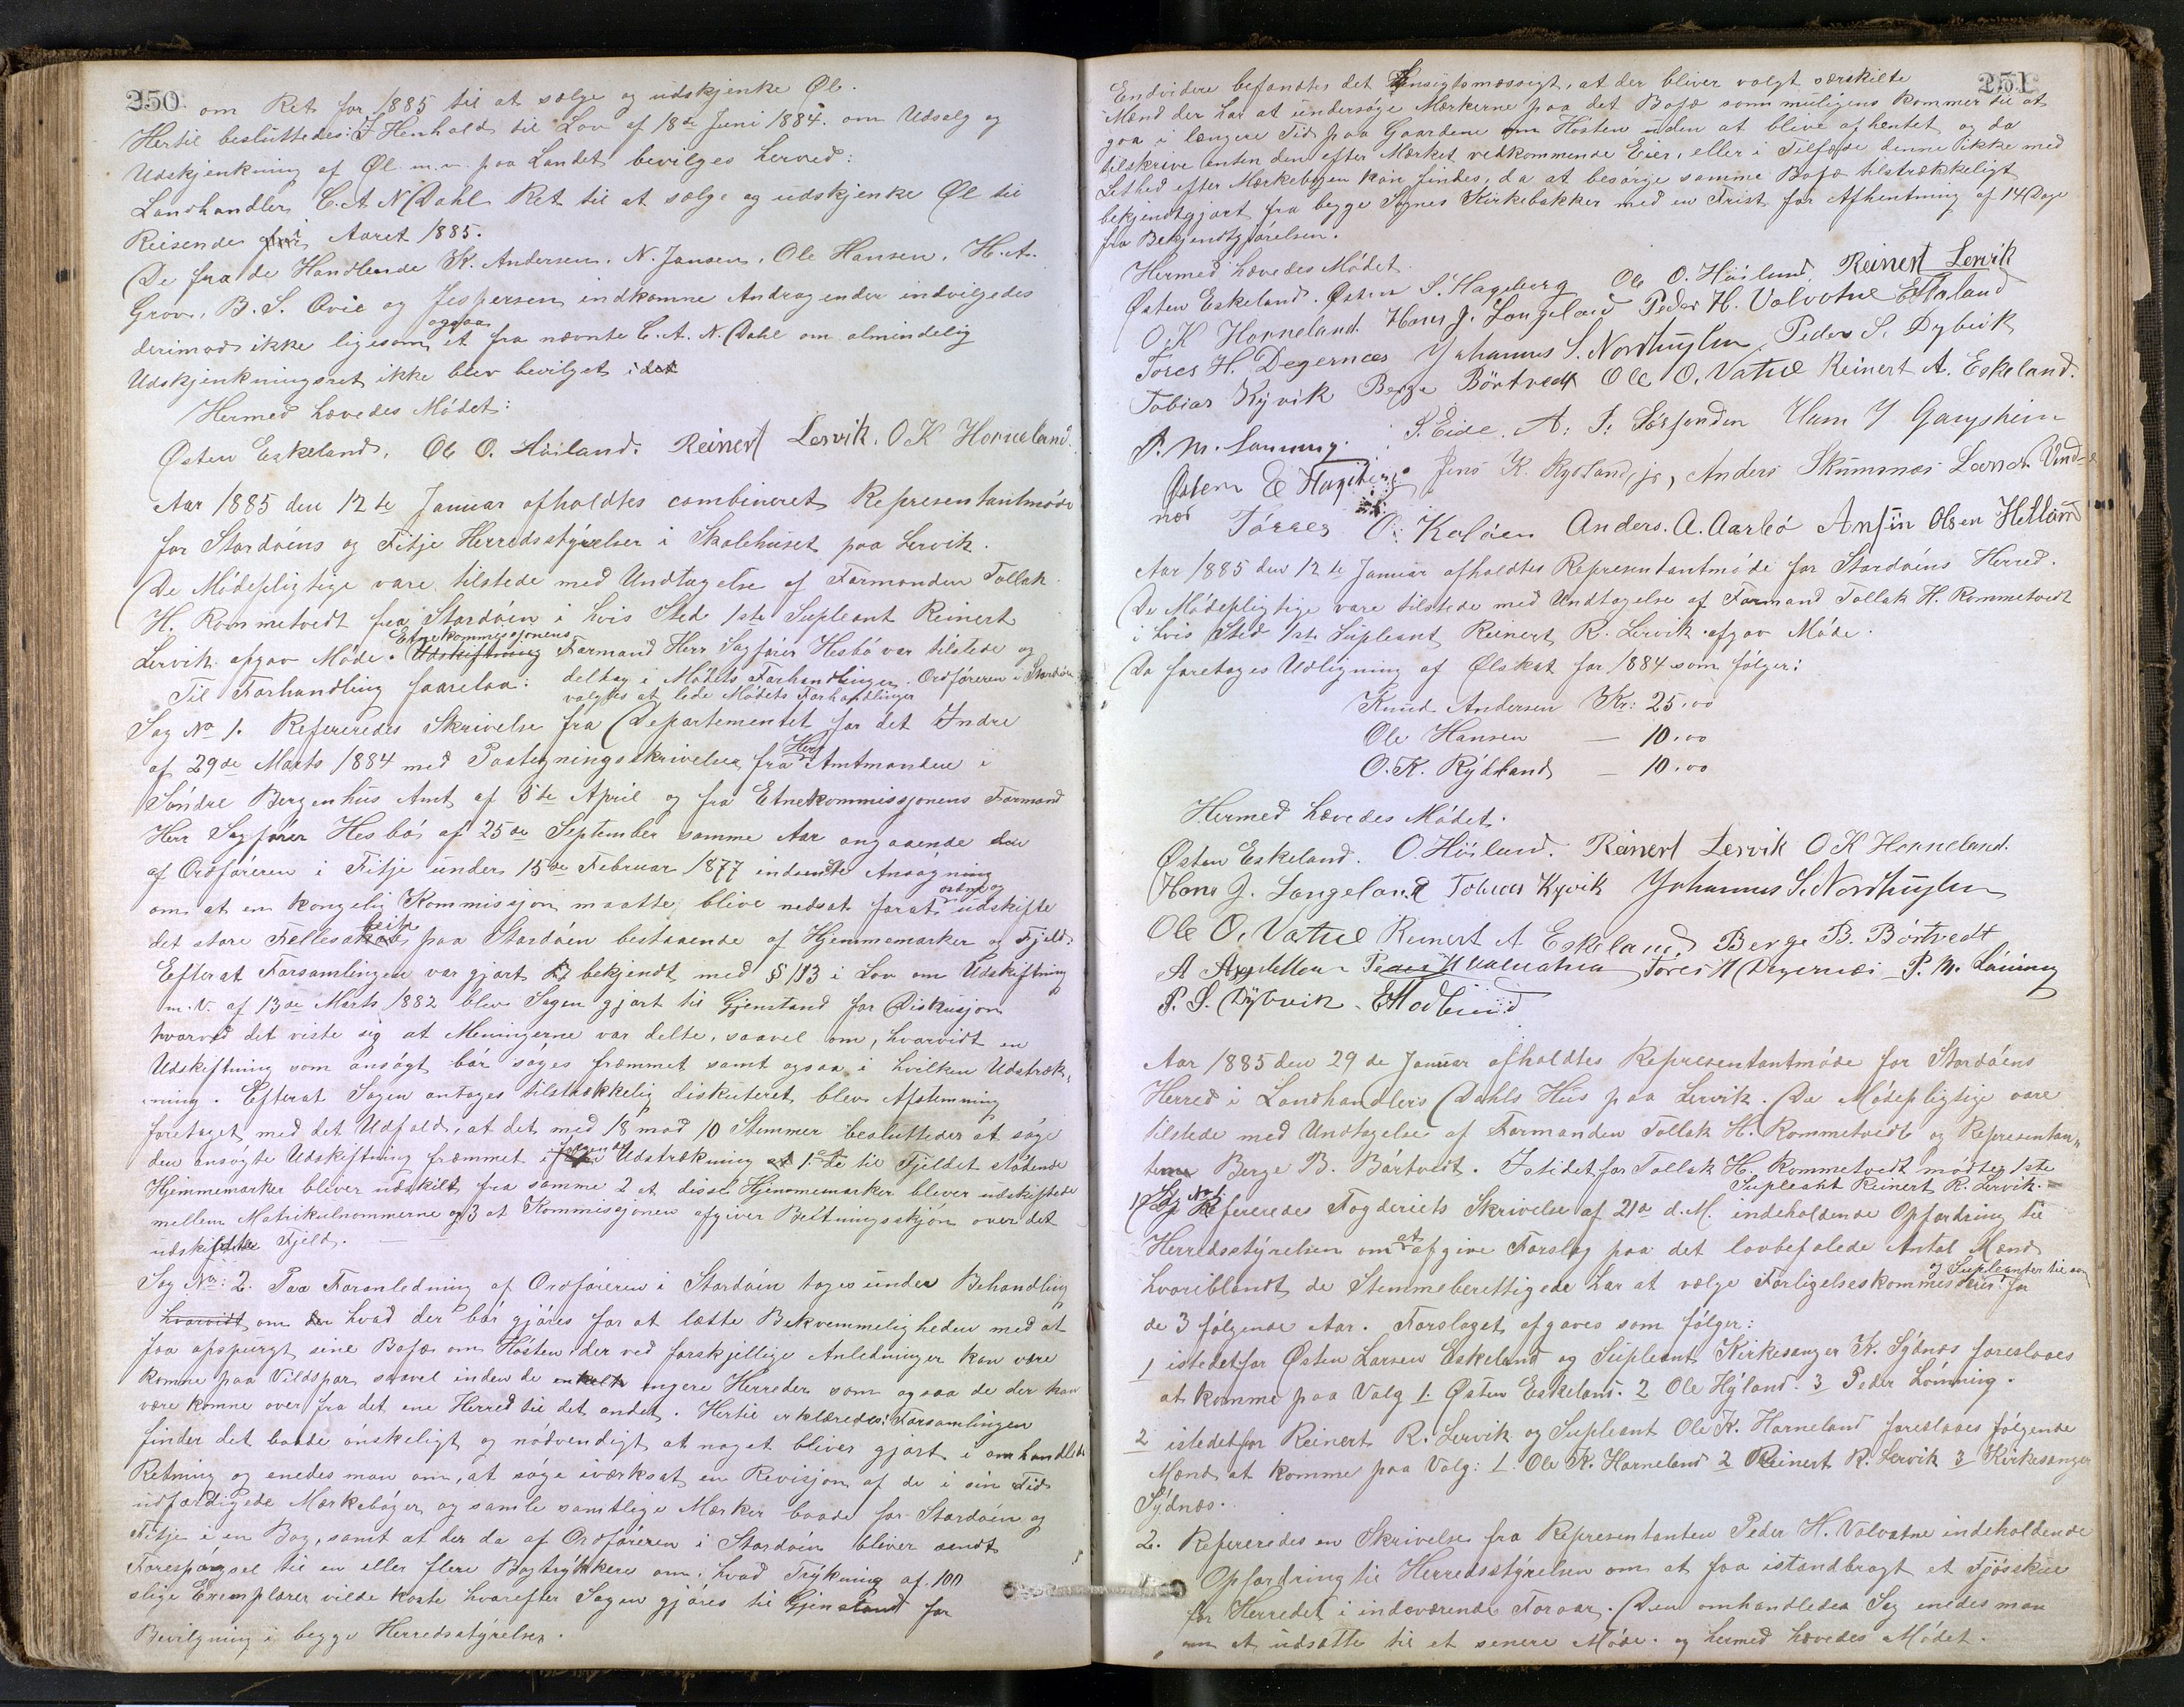 250.
om Ret for 1885 til at sælge og udskjenke Øl.
Hertil besluttedes: I Henhold til Lov af 18de Juni 1884. om Udsalg og
Udskjenkning af Øl m.v. paa Landet bevilges herved:
Landhandler C. A. N. Dahl Ret til at sælge og udskjenke Øl til
Reisende i Aaret 1885.
De fra de Handlende K. Andersen. N. Jansen, Ole Hansen, H. A.
Grov, B. S. Ovie og Jespersen indkomne Andragender indvilgedes
derimod ikke ligesom ogsaa et fra nævnte C. A. N. Dahl om almindelig
Udskjenkningsret ikke blev bevilget idet
Hermed hævedes Mødet:
Østen Eskeland, Ole O. Høiland. Reinert Lervik. O K Horneland.
Aar 1885 den 12te Januar afholdtes combineret Representantmøde
for Stordøens og Fitje Herredsstyrelser i Skolehuset paa Lervik.
De Mødepligtige vare tilstede med Undtagelse af Formanden Tollak
H. Rommetvedt fra Stordøen i hvis Sted 1ste Supleant Reinert
Lervik afgav Møde. Etnekommissjonens Udskiftning Formand Herr Sagfører Hesbø var tilstede og
Til Forhandling forelaa: deltog i Mødets Forhandlinger. Ordføreren i Stordøen
valgtes at lede Mødets Forhandlinger
Sag No 1. Refereredes Skrivelse fra Departementet for det Indre
af 29de Marts 1884 med Paategningsskrivelser fra Herr Amtmanden i
Søndre Bergenhus Amt af 5te April og fra Etnekommissjonens Formand
Herr Sagfører Hesbø af 25de September samme Aar angaaende den
af Ordføreren i Fitje under 15de Februar 1877 indsendte Ansøgning
om at en kongelig Kommissjon maatte blive nedsat for at ordne og udskifte
det store Fellesbeite paa Stordøen bestaaende af Hjemmemarker og Fjeld.
Efterat Forsamlingen var gjort bekjendt med § 113 i Lov om Udskiftning
m. V. af 13de Marts 1882 blev Sagen gjort til Gjenstand for Diskusjon
hvorved det viste sig at Meningerne var delte, saavel om, hvorvidt en
Udskiftning som ansøgt bør søges fræmmet samt ogsaa i hvilken Udstræk-
ning. Efterat Sagen antoges tilstrækkelig diskuteret blev Afstemning
foretaget med det Udfald, at det med 18 mod 10 Stemmer besluttedes at søge
den ansøgte Udskiftning fræmmet i følgende Udstrækning at 1. de til Fjeldet stødende
Hjemmemarker bliver udskilt fra samme 2 at disse Hjemmemarker bliver udskiftede
mellem Matrikulnommerne og 3 at Kommissjonen afgiver Beitningsskjøn over det
udskiftede Fjeld.
Sag No: 2. Paa Foranledning af Ordføreren i Stordøen toges under Behandling
hvorvidt om hvad der bør gjøres for at lætte Bekvemmeligheden med at
faa opspurgt sine Bofæ om Høsten der ved forskjellige Anledninger kan være
komne paa Vildspor saavel inden de enkelte Herreder som ogsaa de der kan
være komne over fra det ene Herred til det andet. Hertil erklæredes: Forsamlingen
finder det baade ønskeligt og nødvendigt at noget bliver gjort i omhandlede
Retning og enedes man om, at søge iværksat en Revisjon af de i sin Tid
udfærdigede Mærkebøger og samle samtlige Mærker baade for Stordøen og
Fitje i en Bog, samt at der da af Ordføreren i Stordøen bliver sendt
Forespørgsel til en eller flere Bogtrykkere om, hvad Trykning af 100
slige Exemplarer vilde koste hvorefter Sagen gjøres til Gjenstand for
Bevilgning i begge Herredsstyrelser.
251.
Endvidere befandtes det Hensigtsmæssigt, at der bliver valgt særskilte
Mænd der har at undersøge Mærkerne paa det Bofæ som muligens kommer til at
gaa i længere Tid paa Gaardene om Høsten uden at blive afhentet og da
tilskrive enten den efter Mærket vedkommende Eier, eller i Tilfælde denne ikke med
Lethed efter Mærkebogen kan findes, da at besørge samme Bofæ tilstrækkeligt
bekjendtgjort fra begge Sognes Kirkebakker med en Frist for Afhentning af 14 Dage
fra Bekjendtgjørelsen.
Hermed hævedes Mødet
Østen Eskeland. Østen S. Hageberg Ole O. Høilund Reinert Lervik
O. K Horneland. Hans J. Langeland Peder H. Valvatne
Tøres H. Degernæs Johannes S. Nordhuglen, Peder S. Dybvik
Tobias Kyvik Berge Børtvedt Ole O. Vatne Reinert A. Eskeland.
P. M. Lønning. S. Eide.
Østen E Hageberg Jens K. Rydland, jr, Anders Skumsnes
Tørres O. Kaløen Anders. A. Aarbø Ansin Olsen Helland
Aar 1885 den 12te Januar afholdtes Representantmøde for Stordøens Herred.
De Mødepligtige vare tilstede med Undtagelse af Formand Tollak H. Rommetvedt
i hvis Sted 1ste Supleant Reinert R. Lervik afgav Møde.
Da foretoges Udligning af Ølskat for 1884 som følger:
Knud Andersen Kr: 25.00
Ole Hansen — 10.00
O. K. Rydland — 10.00
Hermed hævedes Mødet.
Østen Eskeland. O. Høilund. Reinert Lervik O K Horneland.
Hans J. Langeland Tobias Kyvik Johannes S. Nordhuglen
Ole O. Vatne Reinert A Eskeland Berge B. Børtvedt
Peder H Valvatna Tøres H Degernæs P. M. Lønning
P. S. Dybvik
Aar 1885 den 29de Januar afholdtes Representantmøde for Stordøens
Herred i Landhandlers Dahls Hus paa Lervik. De Mødepligtige vare
tilstede med Undtagelse af Formanden Tollak H. Rommetvedt og Representan-
terne Berge B. Børtvedt. Istedetfor Tollak H. Rommetvedt mødte 1ste
Supleant Reinert R. Lervik.
Sag No 1. Refereredes Fogderiets Skrivelse af 21de d.M. indeholdende Opfordring til
Herredsstyrelsen om at afgive Forslag paa det lovbefalede Antal Mænd
hvoriblandt de Stemmeberettigede har at vælge Forligelseskommissærer og Supleanter til samme for
de 3 følgende Aar. Forslaget afgaves som følger:
1 istedetfor Østen Larsen Eskeland og Supleant Kirkesanger K. Sydnæs foreslaaes
at komme paa Valg 1. Østen Eskeland. 2 Ole Høyland. 3 Peder Lønning.
2 istedetfor Reinert R. Lervik og Supleant Ole K. Horneland foreslaaes følgende
Mænd at komme paa Valg: 1. Ole K. Horneland 2 Reinert R. Lervik 3 Kirkesanger
Sydnæs.
2. Refereredes en Skrivelse fra Representanten Peder H. Valvatne indeholdende
Opfordring til Herredsstyrelsen om at faa istandbragt et Fjøsskue
for Herredet i indeværende Foraar. Den omhandlede Sag enedes man
om at udsætte til et senere Møde. og hermed hævedes Mødet.